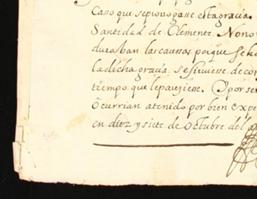 Caso que se pronogane esta gracia
Santidad de Clemente. Nono
durasban las causas porque se hi
la dicha gracia, se sirviese de con
tiempo que le pareziese. Y por ser
Ocurrian atenido por bien expe
en diez y siete de Octubre del a